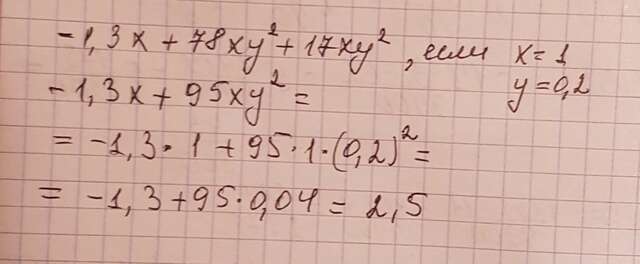 -1,3x + 78xy² + 17xy², если x = 1
y = 0,2
-1,3x + 95xy² =
= -1,3 · 1 + 95 · 1 · (0,2)² =
= -1,3 + 95 · 0,04 = 2,5